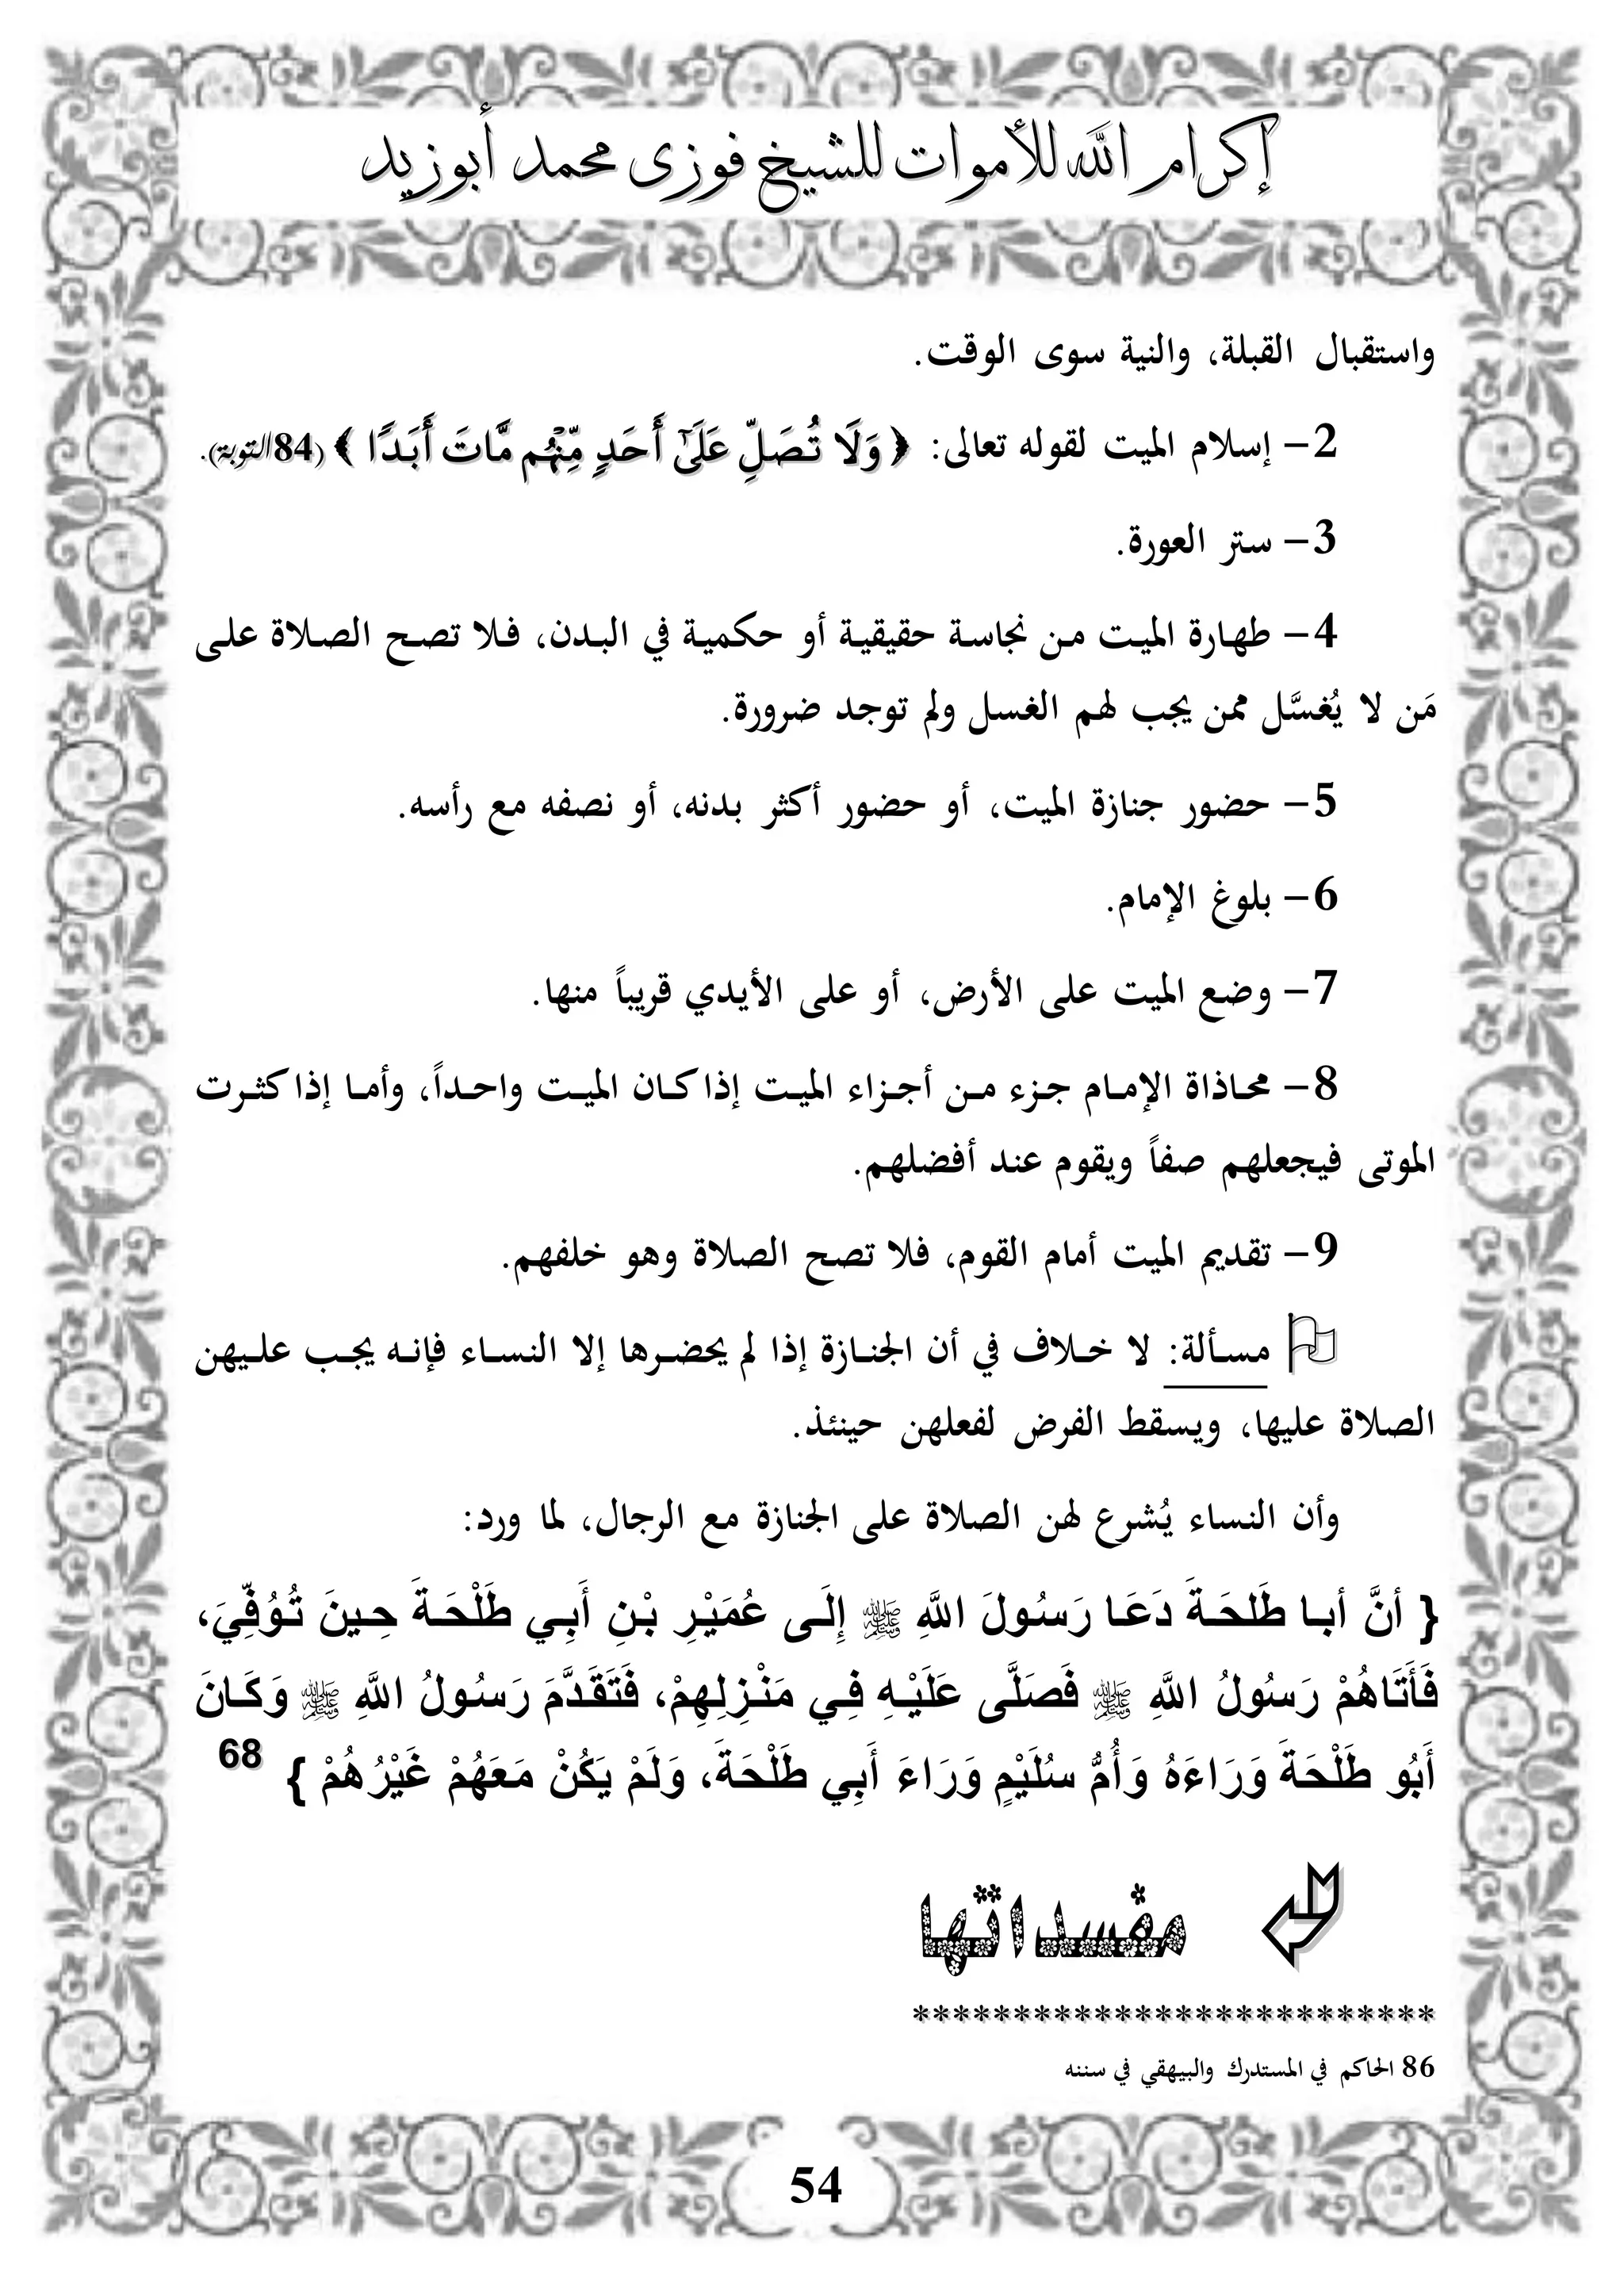 إكرام الله للأموات للشيخ فوزى محمد أبوزيد
واستقبال القبلة، والنية سوى الوقت.
2- إسلام الميت لقوله تعالى: ﴿ وَلَا تُصَلِّ عَلَىٰٓ أَحَدٍ مِّنْهُم مَّاتَ أَبَدًا ﴾ (84التوبة).
3- ستر العورة.
4- طهارة الميت من نجاسة حقيقية أو حكمية في البدن، فلا تصح الصلاة على
مَن لا يُغسَّل ممن يجب لهم الغسل ولم توجد ضرورة.
5- حضور جنازة الميت، أو حضور أكثر بدنه، أو نصفه مع رأسه.
6- بلوغ الإمام.
7- وضع الميت على الأرض، أو على الأيدي قريباً منها.
8- محاذاة الإمام جزء من أجزاء الميت إذا كان الميت واحداً، وأما إذا كثرت
الموتى فيجعلهم صفاً ويقوم عند أفضلهم.
9- تقديم الميت أمام القوم، فلا تصح الصلاة وهو خلفهم.
مسألة: لا خلاف في أن الجنازة إذا لم يحضرها إلا النساء فإنه يجب عليهن
الصلاة عليها، ويسقط الفرض لفعلهن حينئذ.
وأن النساء يُشرع لهن الصلاة على الجنازة مع الرجال، لما ورد:
{ أنَّ أبا طَلحَةَ دَعَا رَسُولَ اللهِ ﷺ إِلَى عُمَيْرِ بْنِ أَبِي طَلْحَةَ حِينَ تُوُفِّيَ،
فَأَتَاهُمْ رَسُولُ اللهِ ﷺ فَصَلَّى عَلَيْهِ فِي مَنْزِلِهِمْ، فَتَقَدَّمَ رَسُولُ اللهِ ﷺ وَكَانَ
أَبُو طَلْحَةَ وَرَاءَهُ وَأُمُّ سُلَيْمٍ وَرَاءَ أَبِي طَلْحَةَ، وَلَمْ يَكُنْ مَعَهُمْ غَيْرُهُمْ } 68
مفسداتها
**************************
86 الحاكم في المستدرك والبيهقي في سننه
54